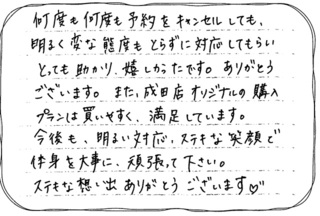 何度も何度も予約をキャンセルしても、
明るく変な態度もとらずに対応してもらい
とっても助かり、嬉しかったです。ありがとう
ございます。また、成田店オリジナルの購入
プランは買いやすく、満足しています。
今後も、明るい対応、ステキな笑顔で
体身を大事に、頑張って下さい。
ステキな想い出ありがとうございます♡